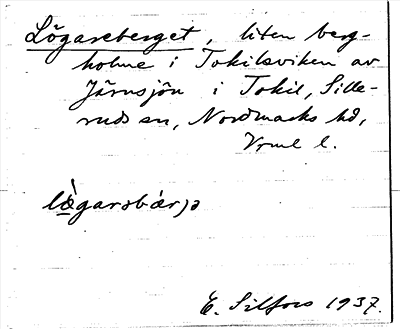 Lögareberget, liten berg-
holme i Tokilsviken av
Järnsjön i Tokil, Sille-
ruds sn, Nordmarks hd,
Vrml l.
lø̀garəbærjə
E. Silfors 1937.